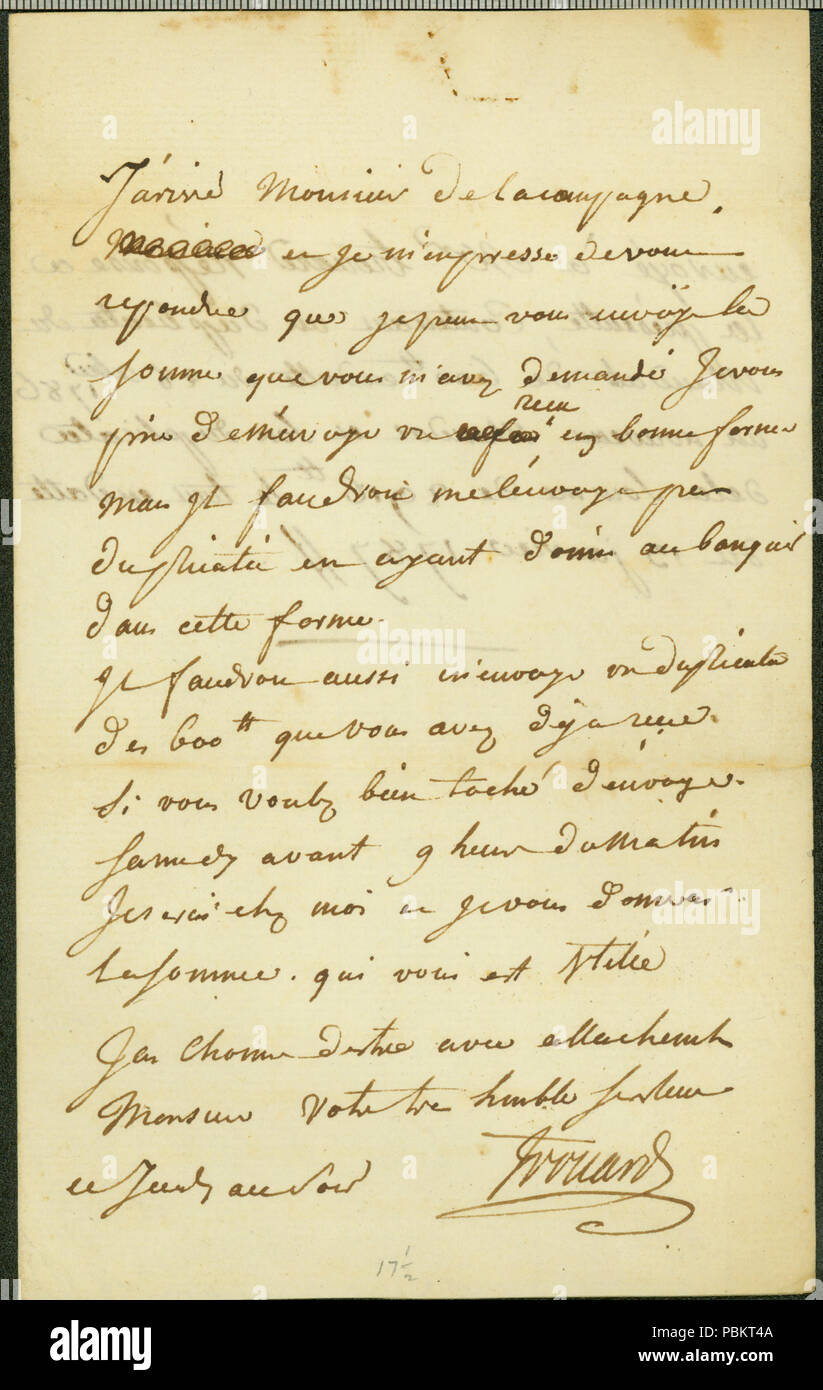 J'arive Monsieur de la campagne
et je m'enpresse de vous
repondre que je peux vous envoÿe la
somme que vous m'avez demandé Je vous
prie de m'envoye un recu en bonne forme
mais Il faudroit me l'envoye par
duplicata en ayant donné au banquié
dans cette forme.
Il faudroit aussi m'envoye un duplicata
des 600 tt que vous avez deja recue.
Si vous voulez bien taché d'envoye.
samedy avant 9 heure du Matin
Je serai chez moi et je vous donnerai
la somme. qui vous est Utile
J'ai l'honneur d'estre avec attachement
Monsieur Votre tres humble serviteur
ce Jeudy au soir
Trouard
17 1/2
alamy
Image ID: PBKT4A
www.alamy.com